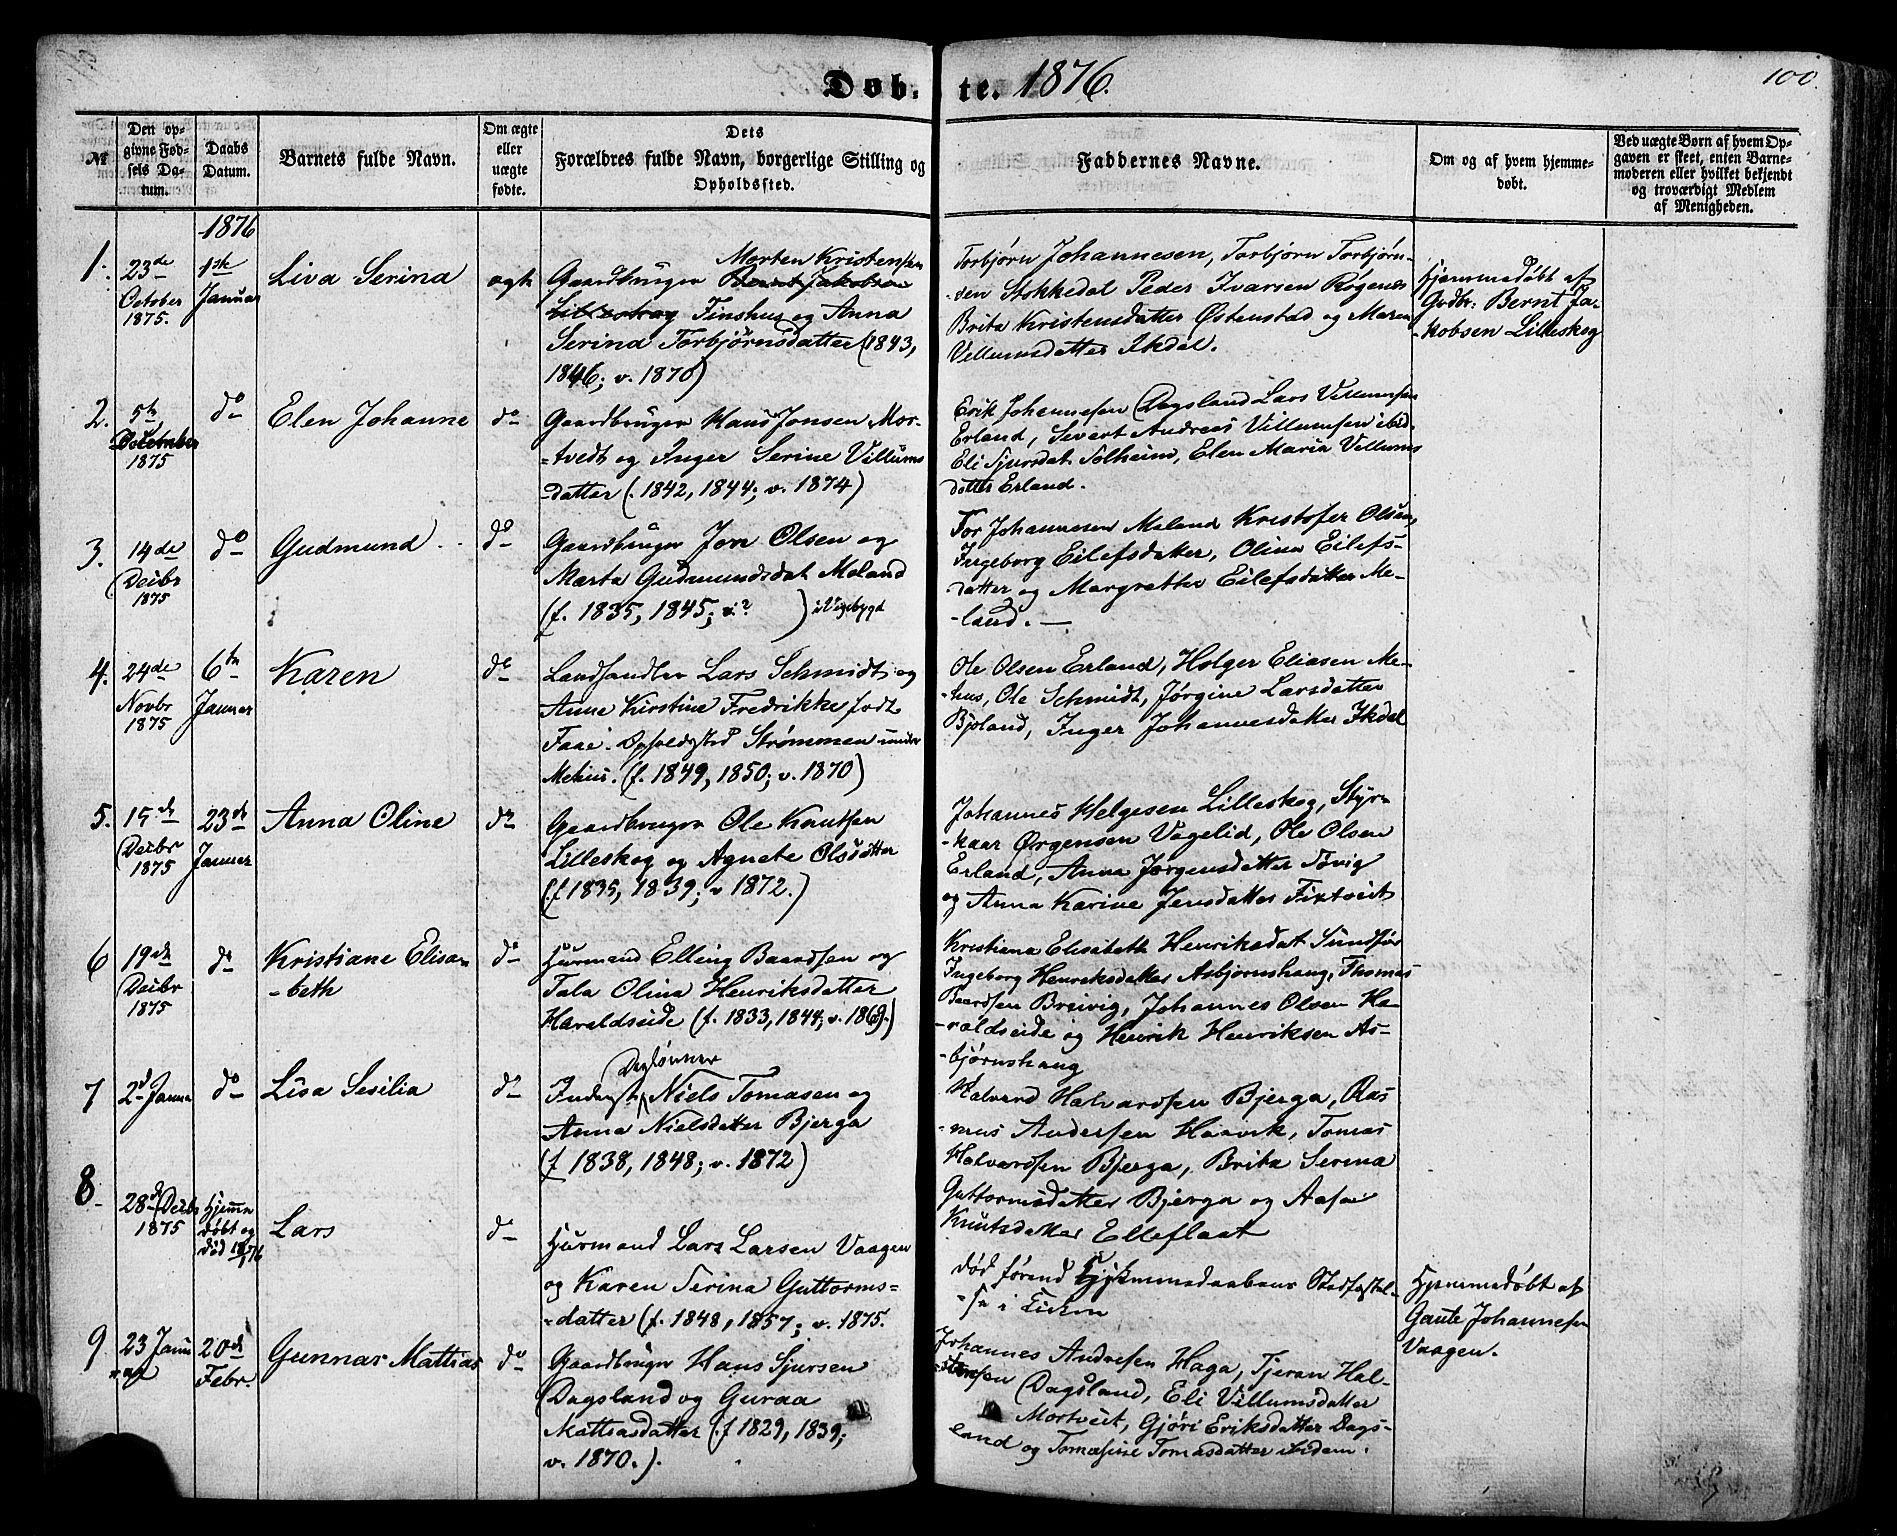 Døb-te. 1876.
100.
№
Den op-
givne Fød-
sels Da-
tum.
Daabs
Datum.
Barnets fulde Navn.
Om ægte
eller
uægte
fødte.
Dets
Forældres fulde Navn, borgerlige Stilling og
Opholdssted.
Faddernes Navne.
Om og af hvem hjemme-
døbt.
Ved uægte Børn af hvem Op-
gaven er skeet, enten Barne-
moderen eller hvilket bekjendt
og troværdigt Medlem
af Menigheden.
1876
1.
23de
October
1875.
1ste
Januar
Liva Serina
ægte
Morten Kristensen
Gaardbruger Bernt Jakobsen
Lilleskog Finshus og Anna
Serina Torbjørnsdatter (1843,
1846; v. 1870)
Torbjørn Johannesen, Torbjørn Torbjørn-
-sen Stokkedal Peder Ivarsen Røgenes
Brita Kristensdatter Østenstad og Maren
Villumsdatter Ikdal.
Hjemmedøbt af
Grdbr: Bernt Ja-
-kobsen Lilleskog
2.
5te
December
1875
do
Elen Johanne
do
Gaardbruger Hans Jonsen Mor-
-tvedt og Inger Serine Villums
-datter (. 1842, 1844; v. 1874)
Erik Johannesen Dagsland Lars Villumsen
Erland, Sivert Andreas Villumsen ibid.
Eli Sjursdat. Solheim, Elen Maria Villums
datter Erland.
3.
14de
Decbr
1875
do
Gudmund
do
Gaardbruger Jon Olsen og
Marta Gudmundsdat Meland
(f. 1835, 1845; v. ? ) i Vigebygd
Tor Johannesen Meland Kristofer Olsen,
Ingeborg Eilefsdatter, Olina Eilefs-
datter og Margrethe Eilefsdatter Me-
-land. —
4.
24de
Novbr
1875
6te
Januar
Karen
do
Landhandler Lars Schmidt og
Anne Kirstine Fredrikke født
Faae. Opholdssted Strømmen under
Mehus. (f. 1849, 1850; v. 1870)
Ole Olsen Erland, Holger Eliasen Me-
-hus, Ole Schmidt, Jørgine Larsdatter
Bjoland, Inger Johannesdatter Ikdal
5.
15de
Decbr
1875
23de
Januar
Anna Oline
do
Gaardbruger Ole Knutsen
Lilleskog og Agnete Olsdatter
(f. 1835, 1839; v 1872.)
Johannes Helgesen Lilleskog, Styr-
-kaar Ørgensen Vagelid, Ole Olsen
Erland, Anna Jørgensdatter Tøvig
og Anna Karine Jensdatter Fixtveit
6
19de
Decbr
1875
do
Kristiane Elisa-
-beth
do
Hurmand Elling Baardsen og
Tala Olina Henriksdatter
Haraldseide (f. 1833, 1844; v. 1869.)
Kristiana Elisabeth Henriksdat Sundfør
Ingeborg Henriksdatter Asbjørnshaug, Thomas
Baardsen Breivig, Johannes Olsen Ha-
-raldseide og Henrik Henriksen As-
-bjørnshaug
7
2d Janua
do
Lisa Sesilia
do
Dagløнner
Inderst Niels Tomasen og
Anna Nielsdatter Bjerga
(f 1838, 1848; v. 1872)
Halvard Halvardsen Bjerga, Ras-
-mus Andersen Haavik, Tomas
Halvardsen Bjerga, Brita Serina
Guttormsdatter Bjerga og Aasa
Knutsdatter Elleflaat
8.
28de Decbr
1875
Hjemme
døbt og
død
Lars
do
Huurmand Lars Larsen Vaagen
og Karen Serina Guttorms-
-datter (f. 1848, 1857; v. 1875.
død førend Hjemmedaabens Stadfæstel-
-se i Kirken
Hjemmedøbt af
Gaute Johannesen
Vaagen.
9
23 Janu
-ar
20de
Febr.
Gunnar Mattias
do
Gaardbruger Hans Sjursen
Dagsland og Guraa
Mattiasdatter (f 1829, 1839;
v. 1870.).
Johannes Andresen Haga, Tjeran Hal-
-stensen Dagsland, Eli Villumsdatter
Mortveit, Gjøri Eriksdatter Dags-
land og Tomasine Tomasdatter ibidem.